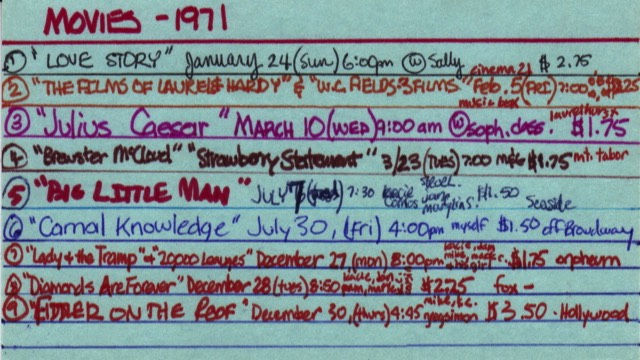 MOVIES - 1971
① "LOVE STORY" January 24 (Sun) 6:00pm ⓦ Sally $2.75
② "THE FILMS OF LAUREL & HARDY" & "W.C. FIELDS: 3 FILMS" Feb. 5 (FRI) 7:00 cinema 21 music box $2.25
③ "Julius Caesar" MARCH 10 (WED) 9:00 am ⓦ soph. class. laurelhurst $1.75
④ "Brewster McCloud" "Strawberry Statement" 3/23 (TUES) 7:00 mike $1.75 mt. tabor
⑤ "BIG LITTLE MAN" JULY 7 7:30 $1.50 Seaside
⑥ "Carnal Knowledge" July 30, (Fri) 4:00pm myself $1.50 off Broadway
⑦ "Lady & the Tramp" & "20,000 Leagues" December 27 (mon) 8:00pm $1.75 orpheum
⑧ "Diamonds Are Forever" December 28 (tues) 8:50 $2.75 fox -
⑨ "FIDDLER ON THE ROOF" December 30, (thurs) 4:45 $3.50 - Hollywood